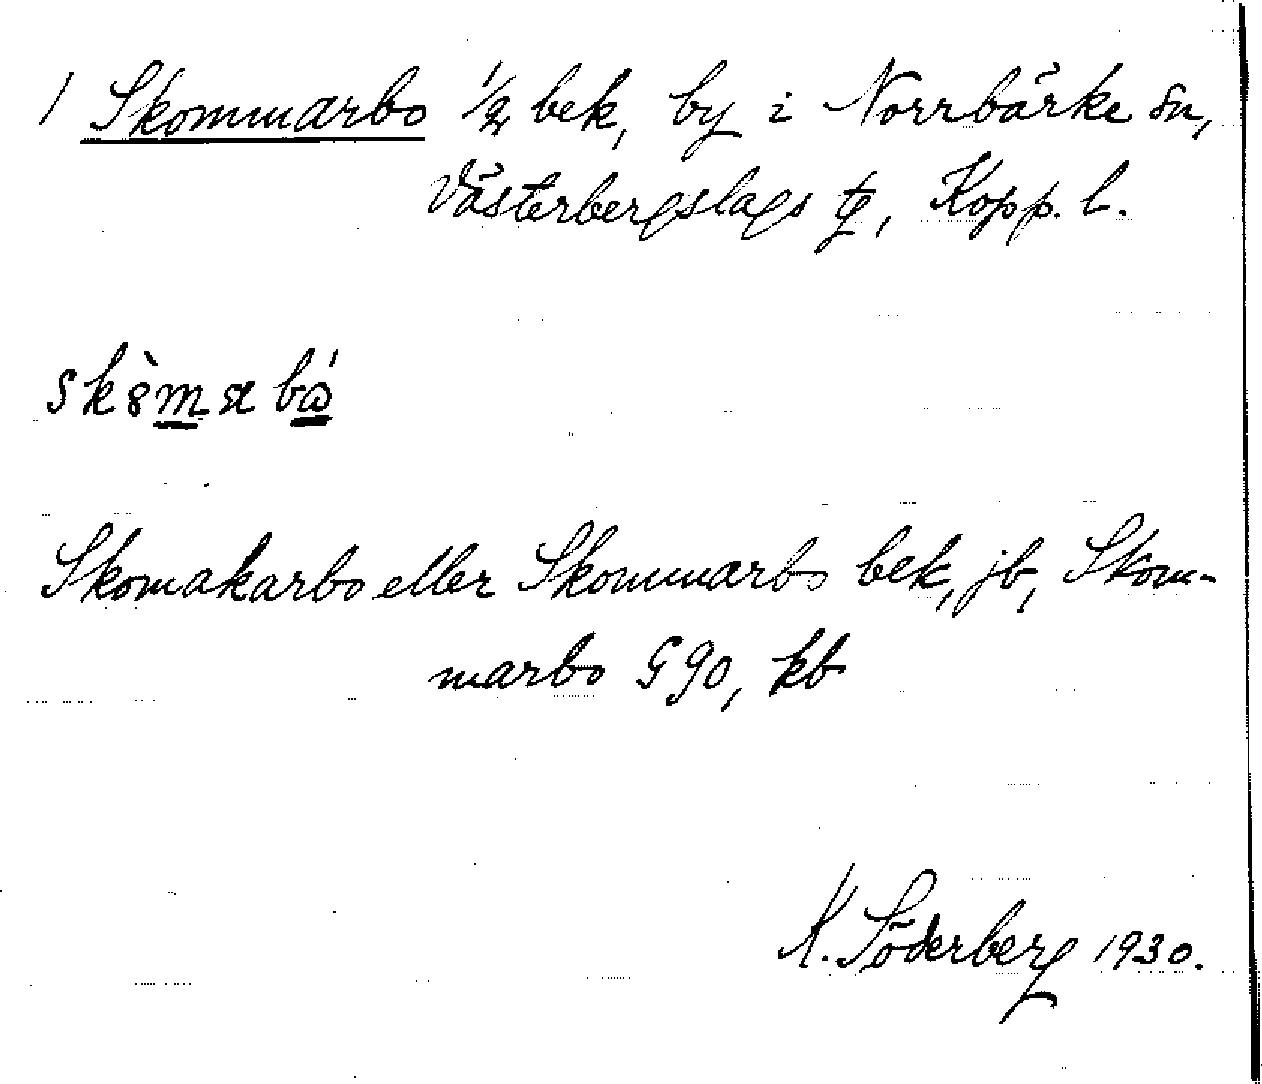 1 Skommarbo 1/2 bek, by i Norrbärke sn,
Västerbergslags tg, Kopp. l.
Skomakarbo eller Skommarbo bek, jb, Skom-
marbo G 90, kb
K. Söderberg 1930.